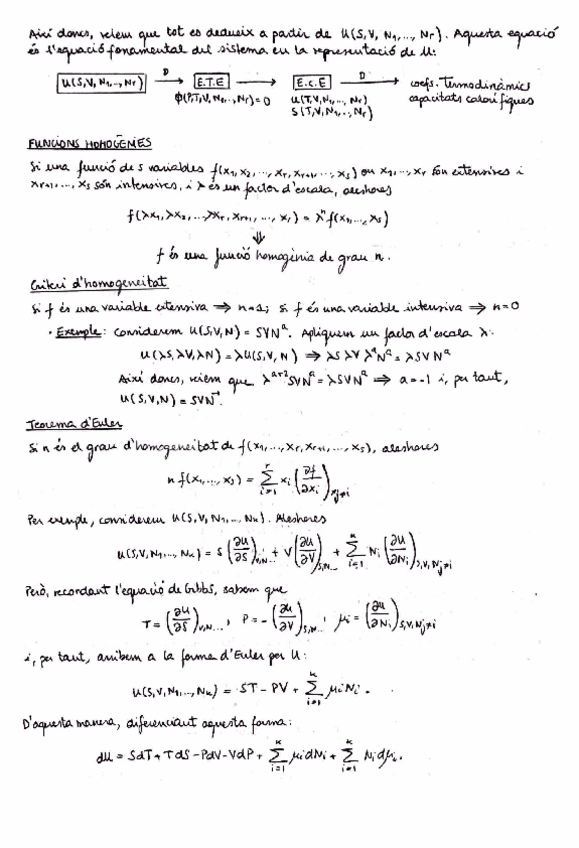 Així doncs, veiem que tot es dedueix a partir de U(S,V,N₁,...,Nr). Aquesta equació
és l'equació fonamental del sistema en la representació de U:
U(S,V,N₁,..,Nr) —D→ E.T.E → E.C.E —D→ coefs. Termodinàmics
ϕ(P,T,V,N₁,..,Nr)=0 U(T,V,N₁,...,Nr) capacitats calorífiques
S(T,V,N₁,...,Nr)
FUNCIONS HOMOGÈNES
Si una funció de s variables f(x₁,x₂,...,xr,xr+1,...,xs) on x₁,...,xr són extensives i
xr+1,...,xs són intensives, i λ és un factor d'escala, aleshores
f(λx₁,λx₂,...,λxr,xr+1,...,xs) = λⁿf(x₁,...,xs)
⇓
f és una funció homogènia de grau n.
Criteri d'homogeneïtat
Si f és una variable extensiva ⇒ n=1; si f és una variable intensiva ⇒ n=0
· Exemple: considerem U(S,V,N) = SVNᵃ. Apliquem un factor d'escala λ:
U(λS,λV,λN) = λU(S,V,N) ⇒ λS λV λᵃNᵃ = λSVNᵃ
Així doncs, veiem que λᵃ⁺²SVNᵃ = λSVNᵃ ⇒ a=-1 i, per tant,
U(S,V,N) = SVN⁻¹.
Teorema d'Euler
Si n és el grau d'homogeneïtat de f(x₁,...,xr,xr+1,...,xs), aleshores
n f(x₁,...,xs) = Σᵢ₌₁ʳ xᵢ (∂f/∂xᵢ)xj≠i
Per exemple, considerem U(S,V,N₁,...,Nk). Aleshores
U(S,V,N₁,...,Nk) = S(∂U/∂S)V,N... + V(∂U/∂V)S,N... + Σᵢ₌₁ᵏ Nᵢ(∂U/∂Nᵢ)S,V,Nj≠i
Però, recordant l'equació de Gibbs, sabem que
T = (∂U/∂S)V,N..., P = -(∂U/∂V)S,N..., μᵢ = (∂U/∂Nᵢ)S,V,Nj≠i
i, per tant, arribem a la forma d'Euler per U:
U(S,V,N₁,...,Nk) = ST - PV + Σᵢ₌₁ᵏ μᵢNᵢ.
D'aquesta manera, diferenciant aquesta forma:
dU = SdT + TdS - PdV - VdP + Σᵢ₌₁ᵏ μᵢdNᵢ + Σᵢ₌₁ᵏ Nᵢdμᵢ.